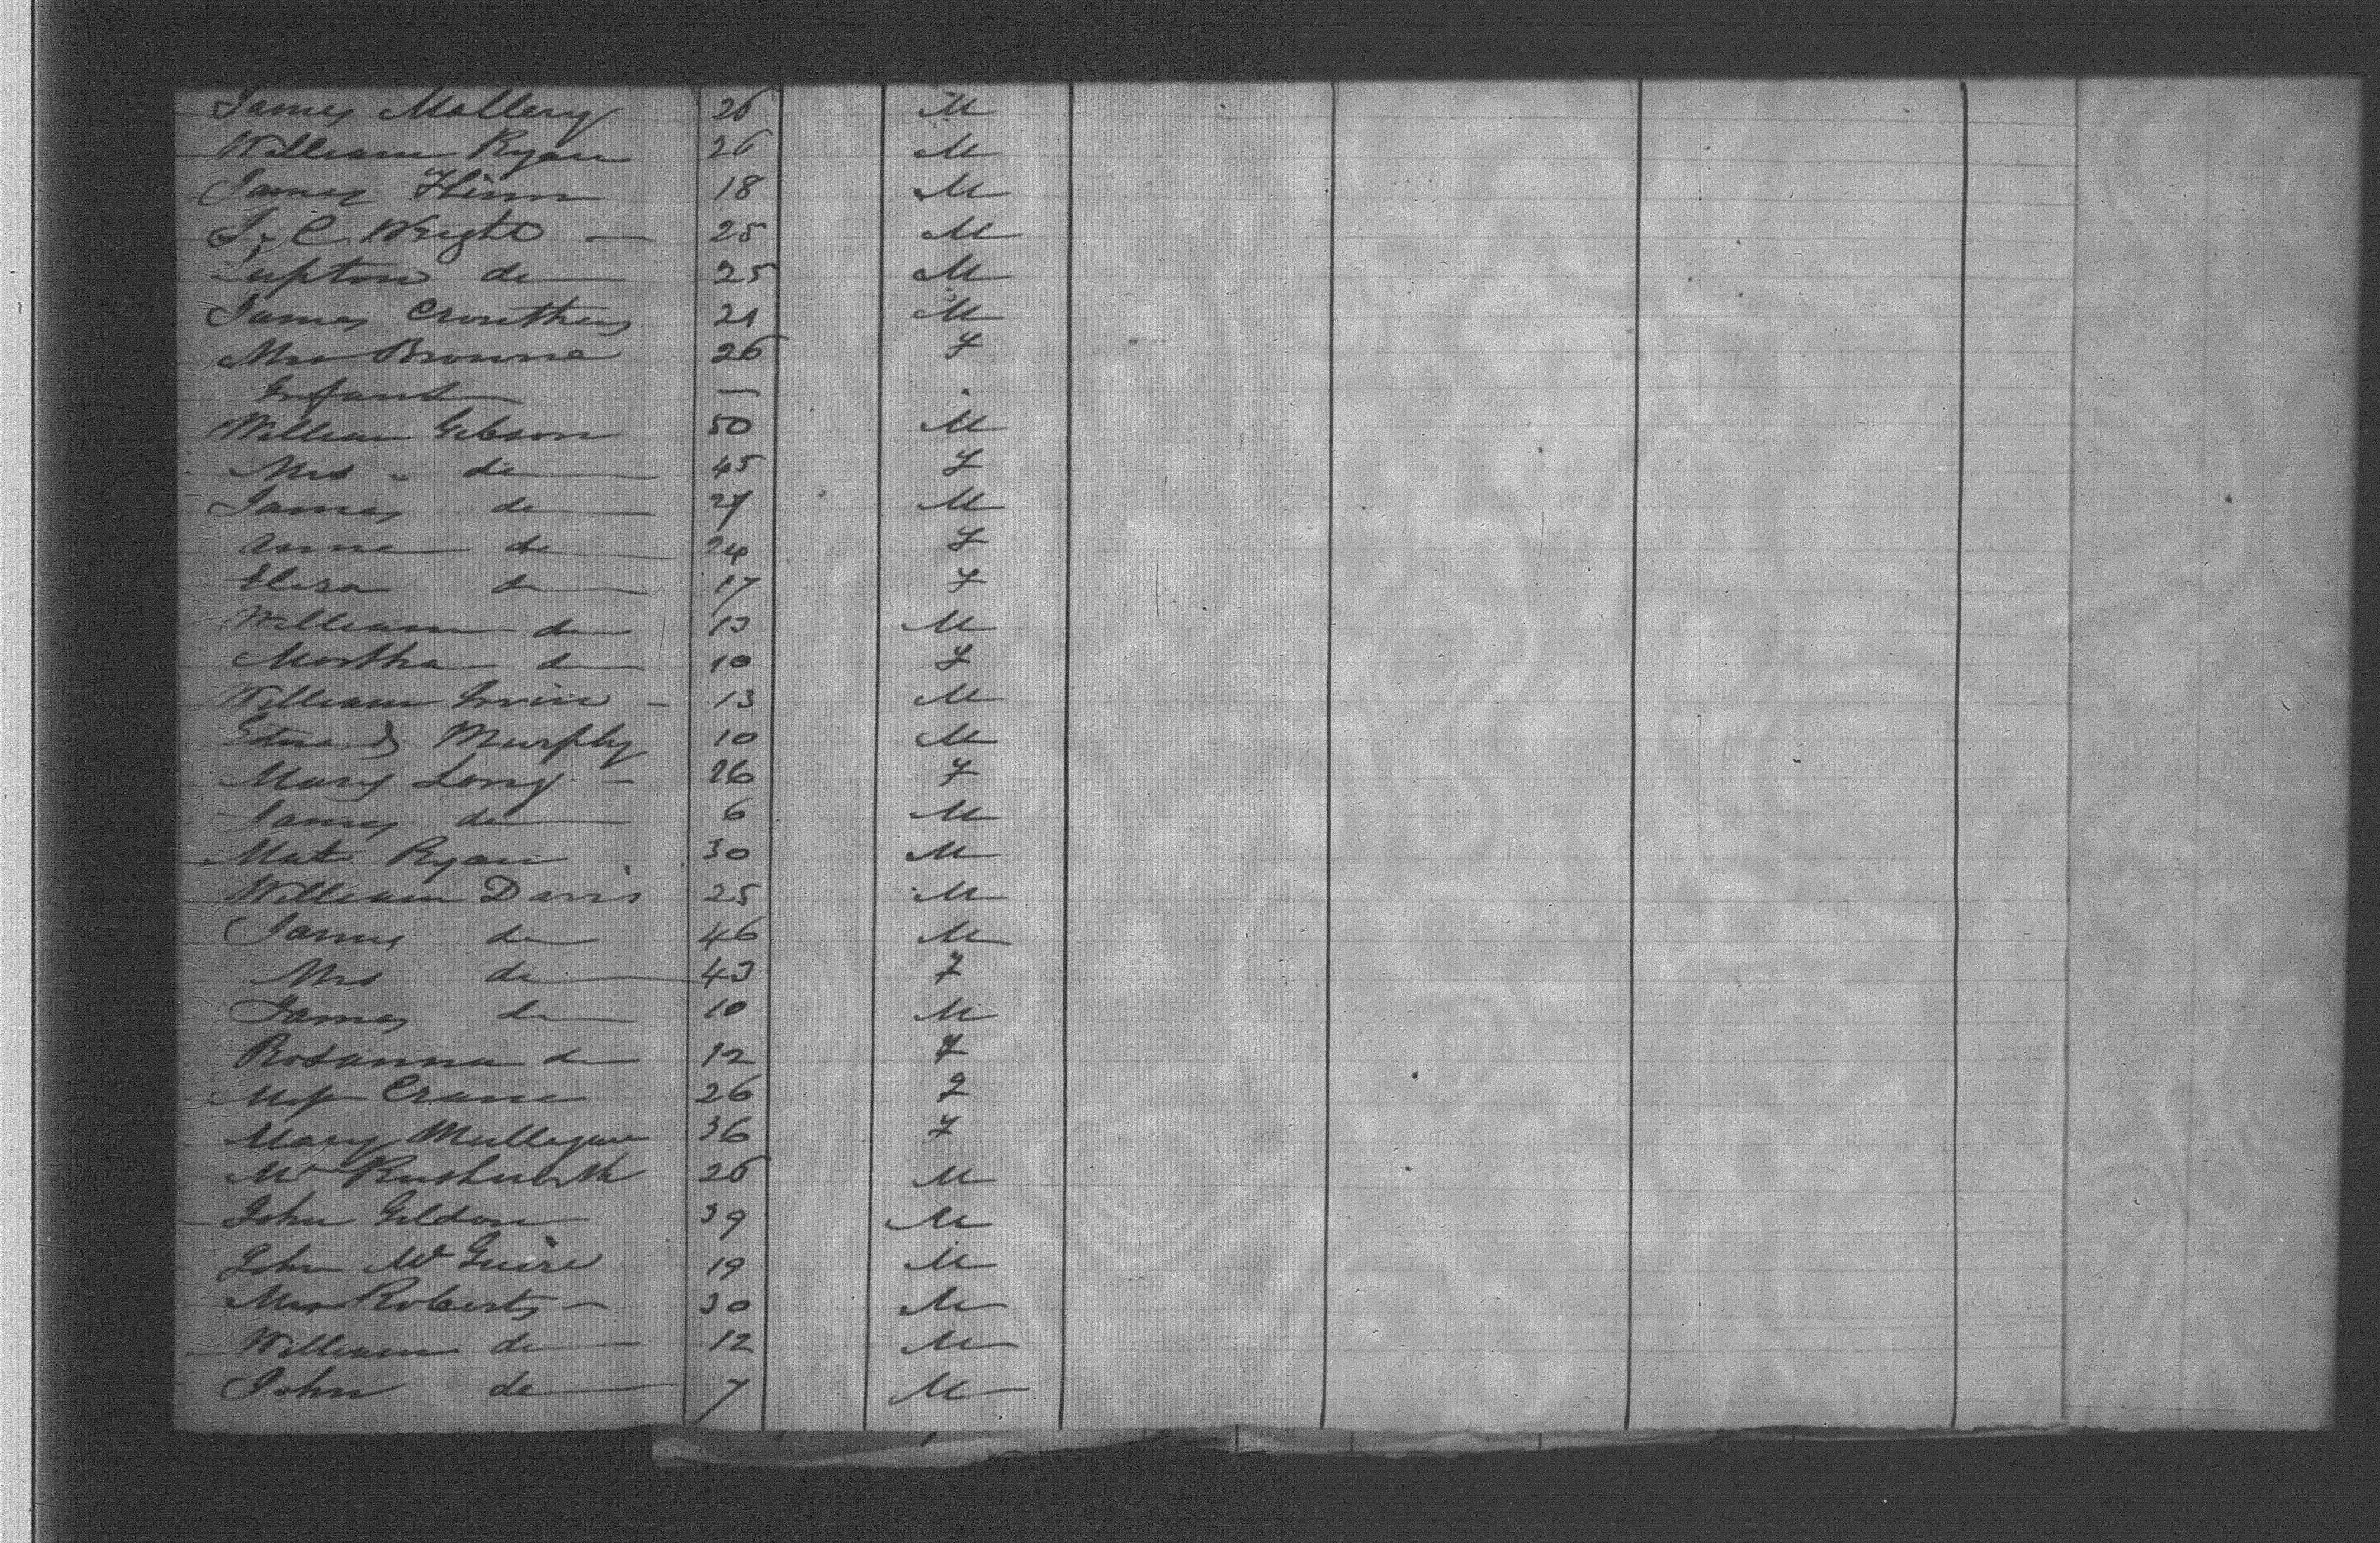 James Mallery 26 M
William Ryan 26 M
James Flinn 18 M
J. C. Wright — 25 M
Lupton do 25 M
James Crouthers 21 M
Mrs Browne 26 F
Infant —
William Gibson 50 M
Mrs do 45 F
James do 27 M
Anne do 24 F
Eliza do 17 F
William do 13 M
Martha do 10 F
William Irvine — 13 M
Edward Murphy 10 M
Mary Long — 26 F
James do 6 M
Mat Ryan 30 M
William Davis 25 M
James do 46 M
Mrs do 43 F
James do 10 M
Rosanna do 12 F
Miss Crane 26 F
Mary Mullegan 36 F
Mr Rushworth 26 M
John Geldon 39 M
John McGuire 19 M
Mrs Roberts — 30 M
William do 12 M
John do 7 M